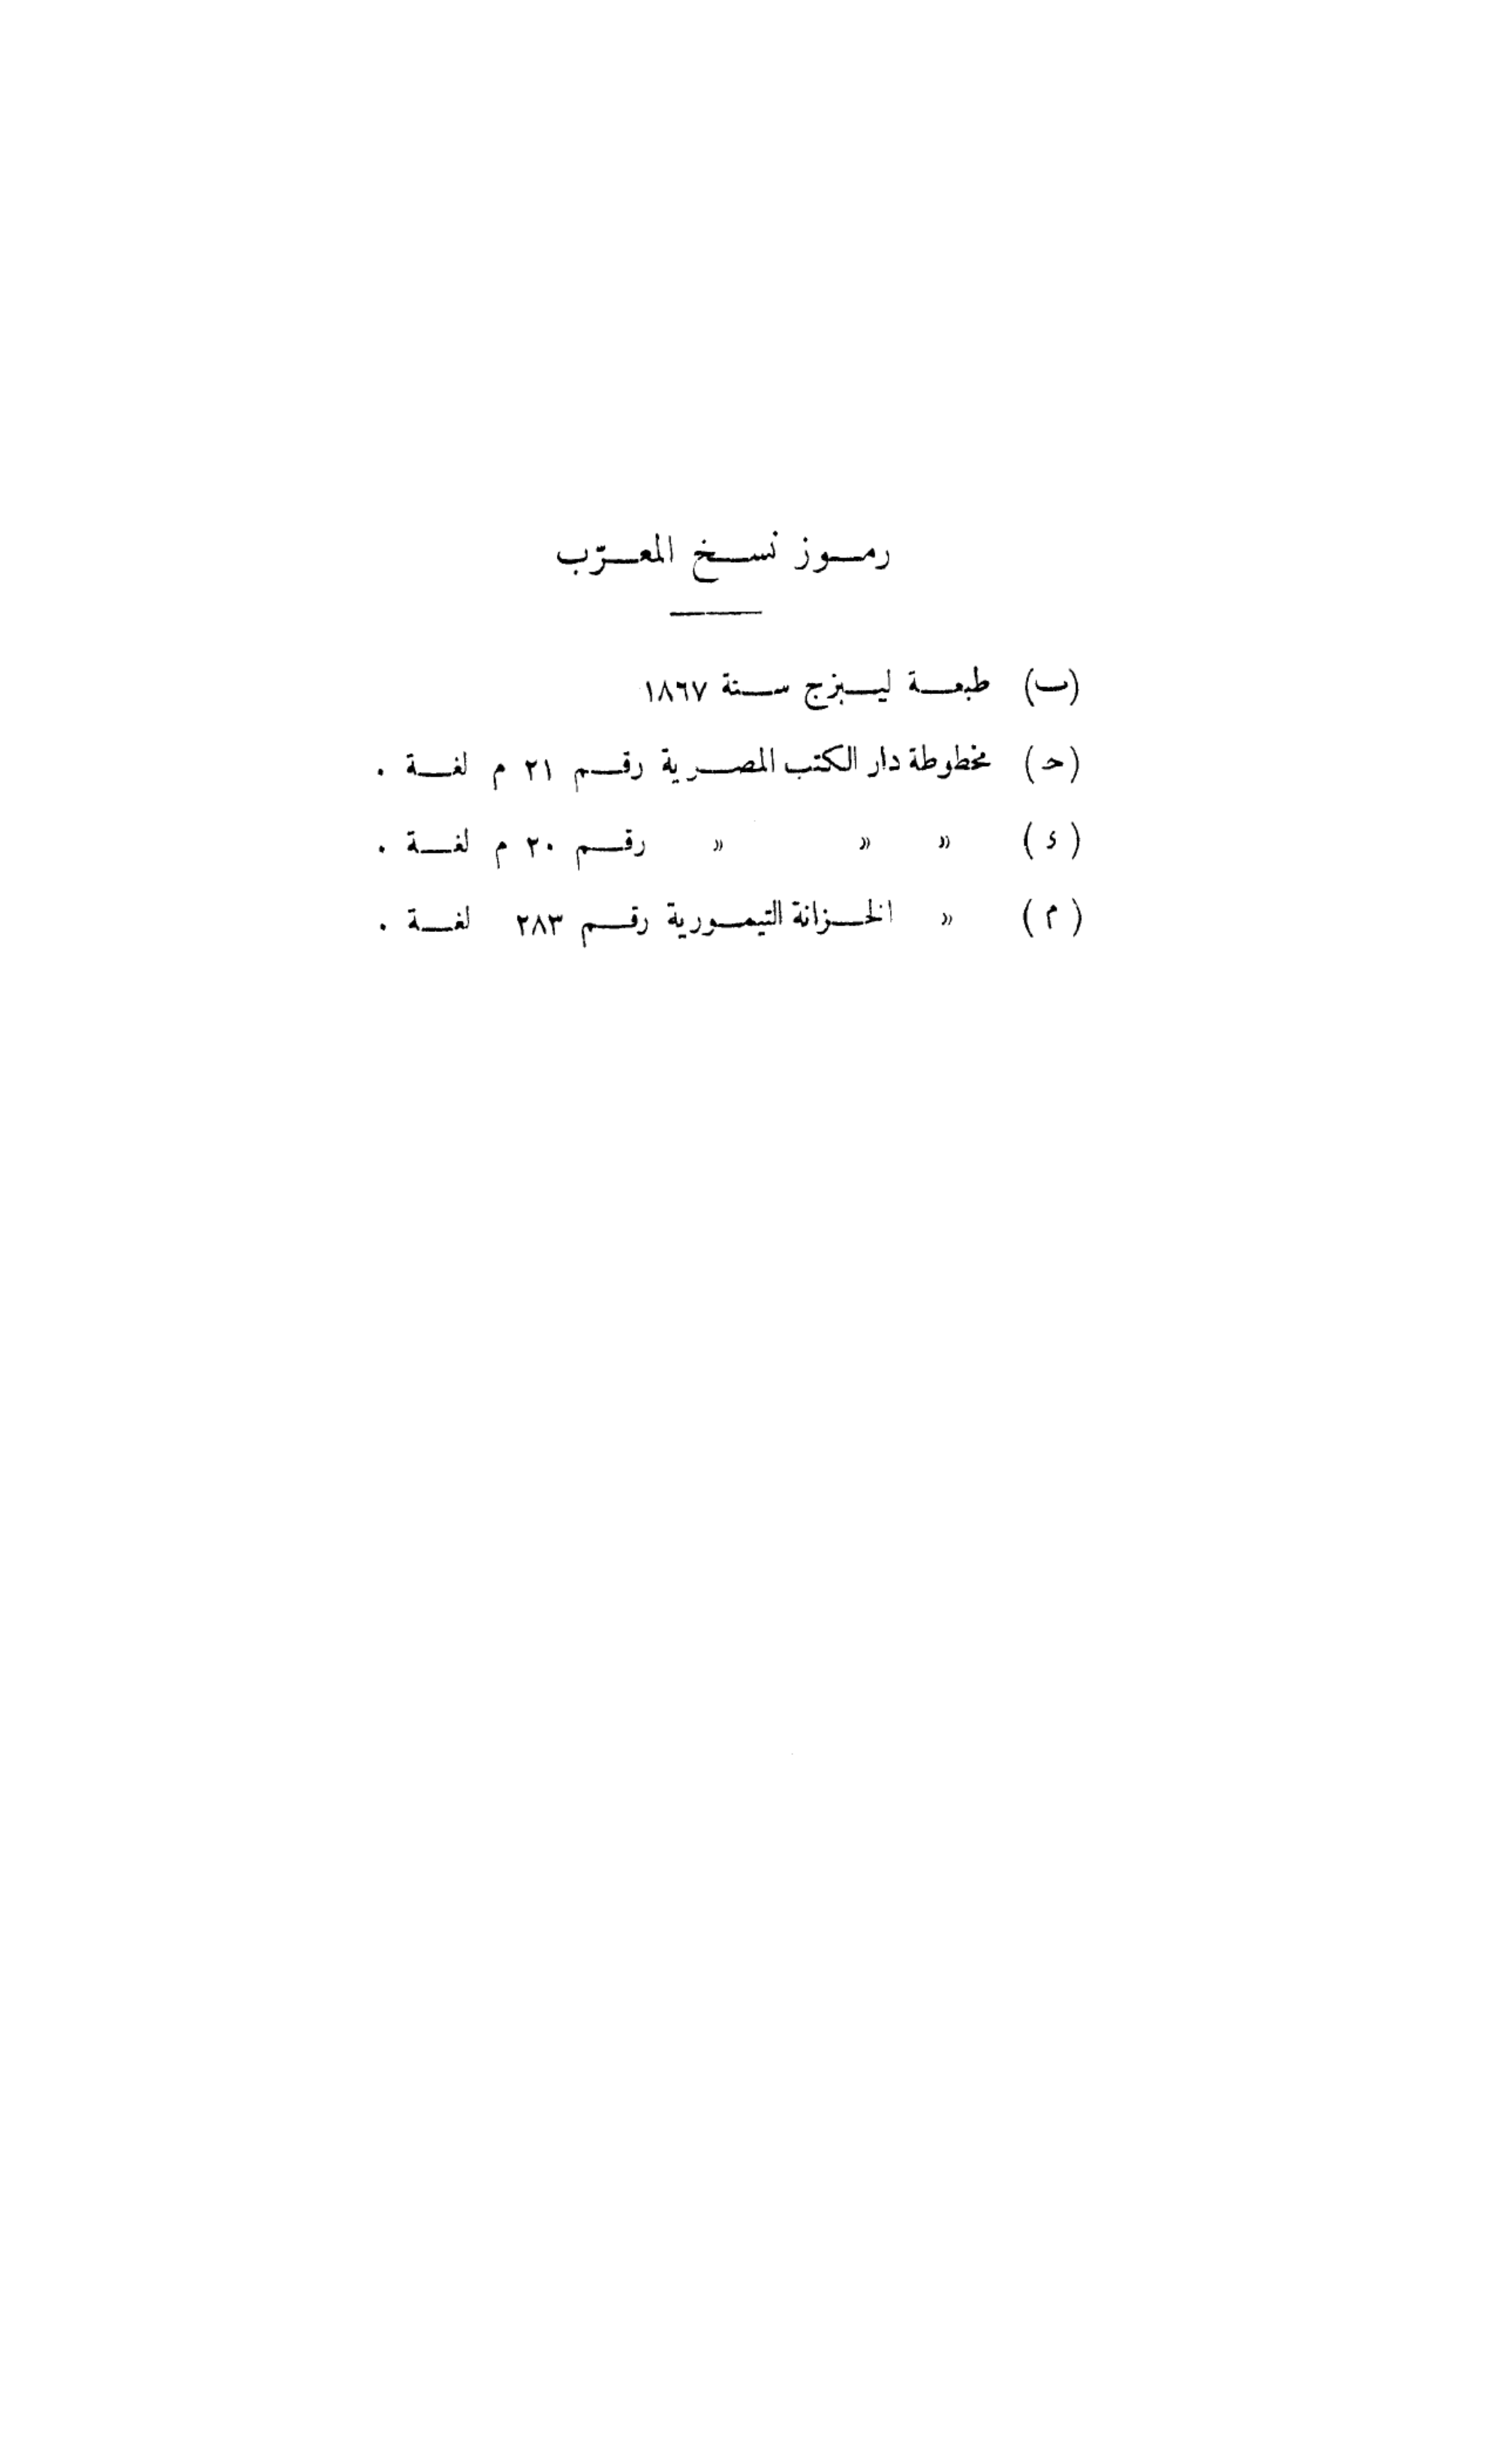 رموز نسخ المعرّب
(ب) طبعة ليبزج سنة ١٨٦٧
(ح) مخطوطة دار الكتب المصرية رقم ٢١ م لغة .
(ء) » » » رقم ٢٠ م لغة .
(م) » الخزانة التيمورية رقم ٢٨٣ لغة .